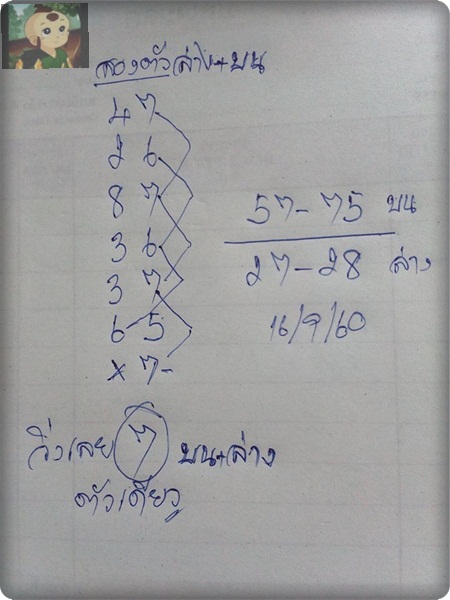 สองตัวล่าง+บน
47
26
87
36
37
65
x7-
57-75 บน
27-28 ล่าง
16/9/60
วิ่งเลย 7 บน+ล่าง
ตัวเดียว